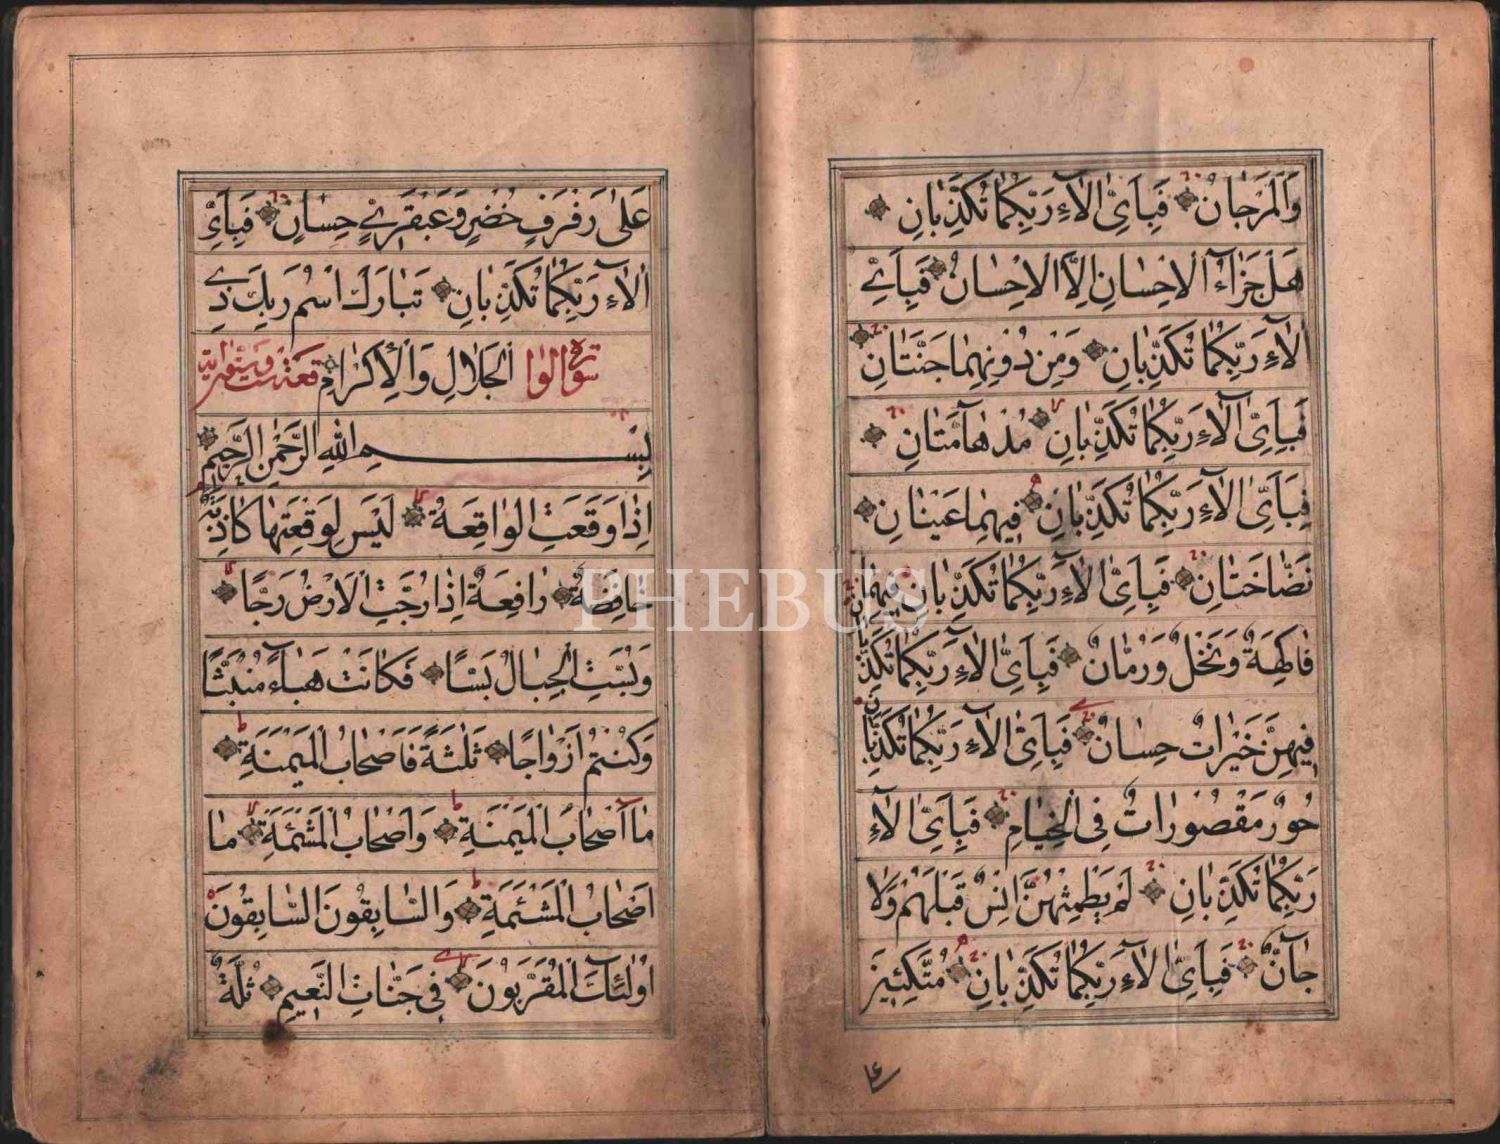 وَالْمَرْجَانُ فَبِأَيِّ اٰلَاءِ رَبِّكُمَا تُكَذِّبَانِ
هَلْ جَزَاءُ الْاِحْسَانِ اِلَّا الْاِحْسَانُ فَبِأَيِّ
اٰلَاءِ رَبِّكُمَا تُكَذِّبَانِ وَمِنْ دُونِهِمَا جَنَّتَانِ
فَبِأَيِّ اٰلَاءِ رَبِّكُمَا تُكَذِّبَانِ مُدْهَامَّتَانِ
فَبِأَيِّ اٰلَاءِ رَبِّكُمَا تُكَذِّبَانِ فِيهِمَا عَيْنَانِ
نَضَّاخَتَانِ فَبِأَيِّ اٰلَاءِ رَبِّكُمَا تُكَذِّبَانِ فِيهِمَا
فَاكِهَةٌ وَنَخْلٌ وَرُمَّانٌ فَبِأَيِّ اٰلَاءِ رَبِّكُمَا تُكَذِّبَانِ
فِيهِنَّ خَيْرَاتٌ حِسَانٌ فَبِأَيِّ اٰلَاءِ رَبِّكُمَا تُكَذِّبَانِ
حُورٌ مَقْصُورَاتٌ فِي الْخِيَامِ فَبِأَيِّ اٰلَاءِ
رَبِّكُمَا تُكَذِّبَانِ لَمْ يَطْمِثْهُنَّ اِنْسٌ قَبْلَهُمْ وَلَا
جَانٌّ فَبِأَيِّ اٰلَاءِ رَبِّكُمَا تُكَذِّبَانِ مُتَّكِئِينَ
عَلَى رَفْرَفٍ خُضْرٍ وَعَبْقَرِيٍّ حِسَانٍ فَبِأَيِّ
اٰلَاءِ رَبِّكُمَا تُكَذِّبَانِ تَبَارَكَ اسْمُ رَبِّكَ ذِي
الْجَلَالِ وَالْاِكْرَامِ سورة الواقعة ست وتسعون اية
بِسْمِ اللهِ الرَّحْمٰنِ الرَّحِيمِ
اِذَا وَقَعَتِ الْوَاقِعَةُ لَيْسَ لِوَقْعَتِهَا كَاذِبَةٌ
خَافِضَةٌ رَافِعَةٌ اِذَا رُجَّتِ الْاَرْضُ رَجًّا
وَبُسَّتِ الْجِبَالُ بَسًّا فَكَانَتْ هَبَاءً مُنْبَثًّا
وَكُنْتُمْ اَزْوَاجًا ثَلٰثَةً فَاَصْحَابُ الْمَيْمَنَةِ
مَا اَصْحَابُ الْمَيْمَنَةِ وَاَصْحَابُ الْمَشْئَمَةِ مَا
اَصْحَابُ الْمَشْئَمَةِ وَالسَّابِقُونَ السَّابِقُونَ
اُولٰئِكَ الْمُقَرَّبُونَ فِي جَنَّاتِ النَّعِيمِ ثُلَّةٌ
PHEBUS